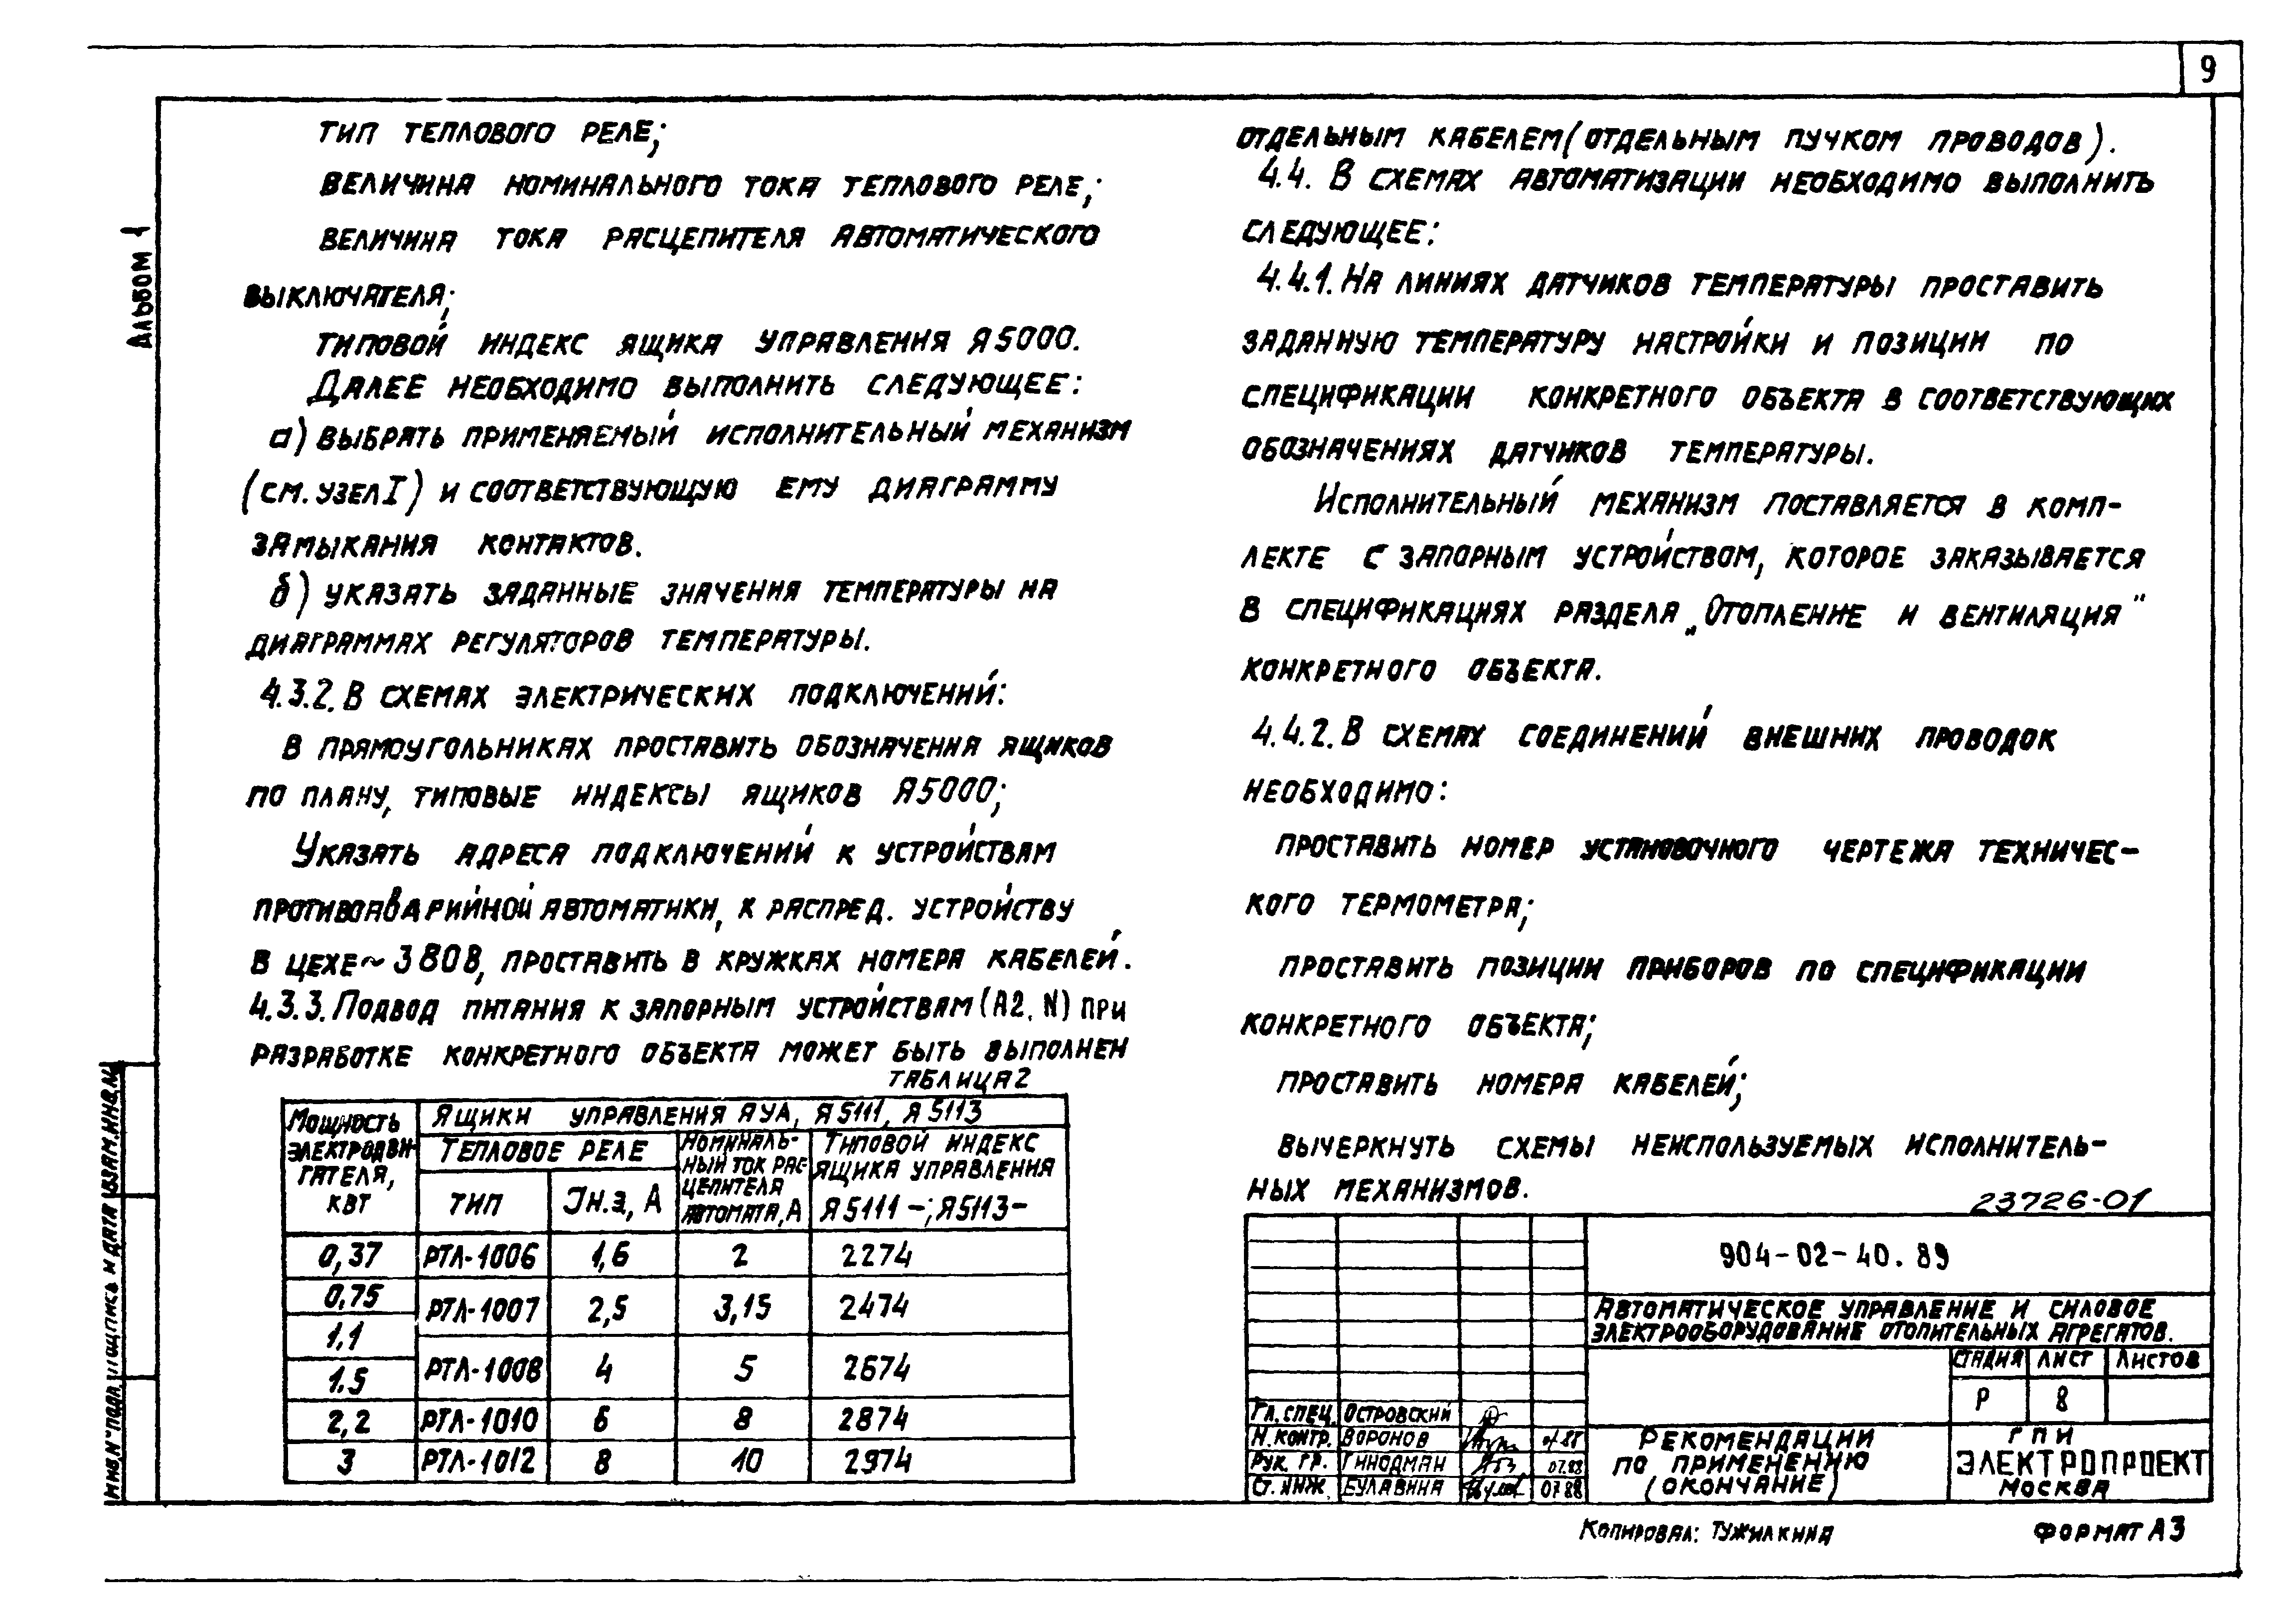 9
Альбом 1
тип теплового реле;
величина номинального тока теплового реле;
величина тока расцепителя автоматического
выключателя;
типовой индекс ящика управления Я5000.
Далее необходимо выполнить следующее:
а) выбрать применяемый исполнительный механизм
(см. узел I) и соответствующую ему диаграмму
замыкания контактов.
б) указать заданные значения температуры на
диаграммах регуляторов температуры.
4.3.2. В схемах электрических подключений:
в прямоугольниках проставить обозначения ящиков
по плану, типовые индексы ящиков Я5000;
Указать адреса подключений к устройствам
противоаварийной автоматики, к распред. устройству
в цехе ~ 380В, проставить в кружках номера кабелей.
4.3.3. Подвод питания к запорным устройствам (А2, N) при
разработке конкретного объекта может быть выполнен
Таблица 2
Мощность электродвигателя, кВт | Ящики управления ЯУА, Я5111, Я5113
Тепловое реле | Номинальный ток расцепителя автомата, А | Типовой индекс ящика управления Я5111-; Я5113-
тип | Iн.э, А
0,37 | РТЛ-1006 | 1,6 | 2 | 2274
0,75 | РТЛ-1007 | 2,5 | 3,15 | 2474
1,1
1.5 | РТЛ-1008 | 4 | 5 | 2674
2,2 | РТЛ-1010 | 6 | 8 | 2874
3 | РТЛ-1012 | 8 | 10 | 2974
отдельным кабелем (отдельным пучком проводов).
4.4. В схемах автоматизации необходимо выполнить
следующее:
4.4.1. На линиях датчиков температуры проставить
заданную температуру настройки и позиции по
спецификации конкретного объекта в соответствующих
обозначениях датчиков температуры.
Исполнительный механизм поставляется в комп-
лекте с запорным устройством, которое заказывается
в спецификациях раздела „Отопление и вентиляция"
конкретного объекта.
4.4.2. В схемах соединений внешних проводок
необходимо:
проставить номер установочного чертежа техничес-
кого термометра;
проставить позиции приборов по спецификации
конкретного объекта;
проставить номера кабелей;
вычеркнуть схемы неиспользуемых исполнитель-
ных механизмов.
23726-01
904-02-40.89
Автоматическое управление и силовое
электрооборудование отопительных агрегатов.
стадия | лист | листов
Р | 8
Гл. спец. Островский
Н. контр. Воронов
Рук. гр. Гинодман 07.88
Ст. инж. Булавина 07 88
Рекомендации
по применению
(окончание)
ГПИ
Электропроект
Москва
Инв.N°подл. Подпись и дата Взам.инв.N
Копировал: Тужилкина
Формат А3